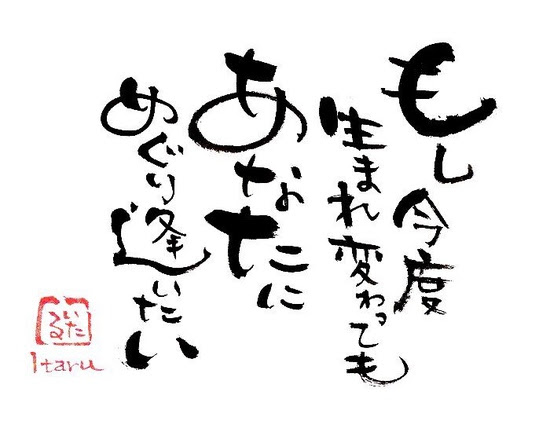 もし今度
生まれ変わっても
あなたに
めぐり逢いたい
いたる
Itaru